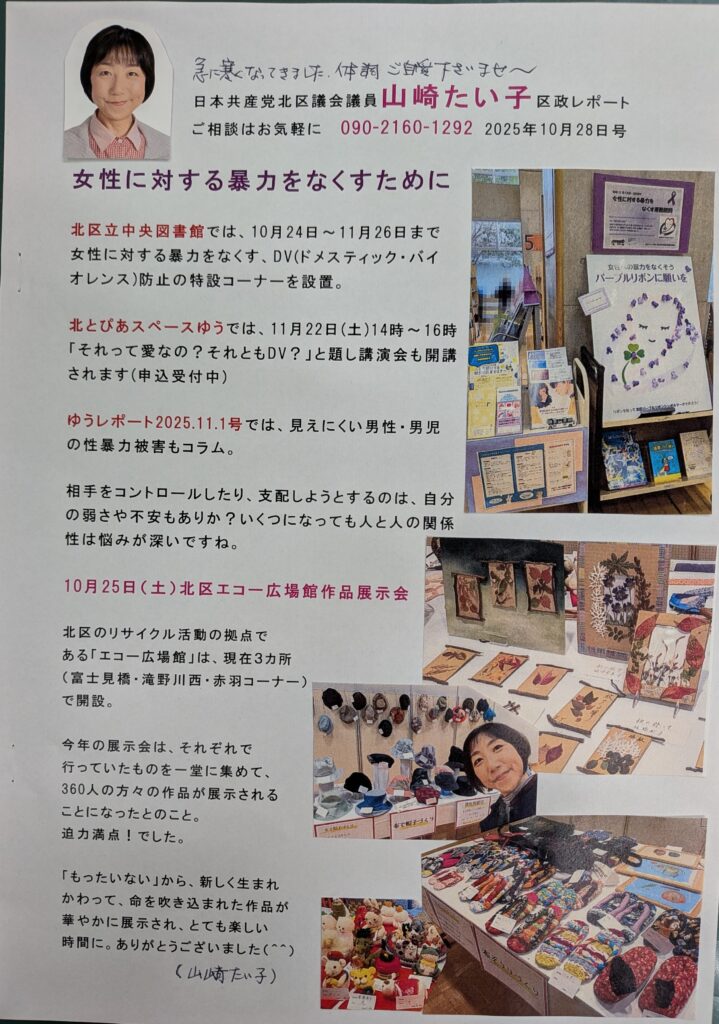 急に寒くなってきました、体調ご自愛下さいませ〜
日本共産党北区議会議員山崎たい子区政レポート
ご相談はお気軽に 090-2160-1292 2025年10月28日号
女性に対する暴力をなくすために
北区立中央図書館では、10月24日〜11月26日まで
女性に対する暴力をなくす、DV(ドメスティック・バイ
オレンス)防止の特設コーナーを設置。
北とぴあスペースゆうでは、11月22日(土)14時〜16時
「それって愛なの？それともDV？」と題し講演会も開講
されます(申込受付中)
ゆうレポート2025.11.1号では、見えにくい男性・男児
の性暴力被害もコラム。
相手をコントロールしたり、支配しようとするのは、自分
の弱さや不安もありか？いくつになっても人と人の関係
性は悩みが深いですね。
女性に対する暴力を
なくす運動期間
5
女性への暴力をなくそう
パープルリボンに願いを
10月25日(土)北区エコー広場館作品展示会
北区のリサイクル活動の拠点で
ある「エコー広場館」は、現在3カ所
(富士見橋・滝野川西・赤羽コーナー)
で開設。
今年の展示会は、それぞれで
行っていたものを一堂に集めて、
360人の方々の作品が展示される
ことになったとのこと。
迫力満点！でした。
「もったいない」から、新しく生まれ
かわって、命を吹き込まれた作品が
華やかに展示され、とても楽しい
時間に。ありがとうございました(^^)
(山崎たい子)
布で帽子づくり